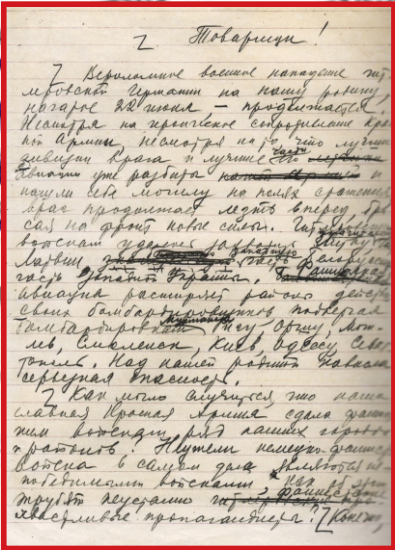 Товарищи!
Вероломное военное нападение гит
леровской Германии на нашу родину,
начатое 22 июня – продолжается.
Несмотря на героическое сопротивление Крас
ной Армии, несмотря на то, что лучшие
дивизии врага и лучшие части его
авиации уже разбиты и
нашли себе могилу на полях сражения,
враг продолжает лезть вперед, бро
сая на фронт новые силы.
войскам удалось захватить
Латвии часть Белоруссии
часть Западной Украины. Фашистская
авиация расширяет районы действия
своих бомбардировщиков, подвергая
бомбардировкам Мурманск, Оршу, Моги
лев, Смоленск, Киев, Одессу, Севас
тополь. Над нашей родиной нависла
серьезная опасность.
Как могло случиться, что наша
славная Красная Армия сдала фашист
ским войскам ряд наших городов
и районов? Неужели немецко-фашист
войска в самом деле являются не
победимыми войсками, как об этом
трубят неустанно фашистские
хвастливые пропагандисты? Конечно,